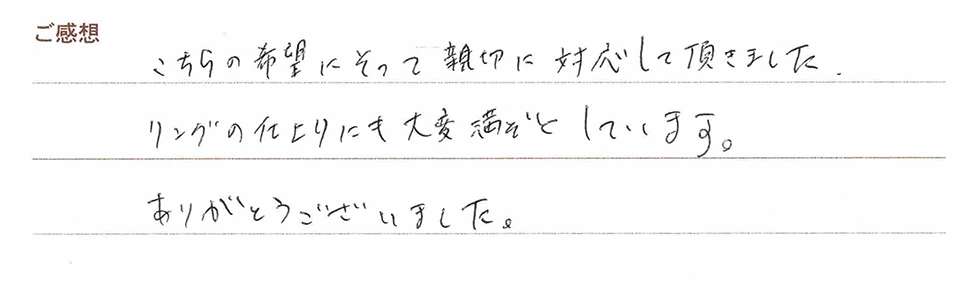 ご感想
こちらの希望にそって親切に対応して頂きました.
リングの仕上りにも大変満ぞくしています。
ありがとうございました。